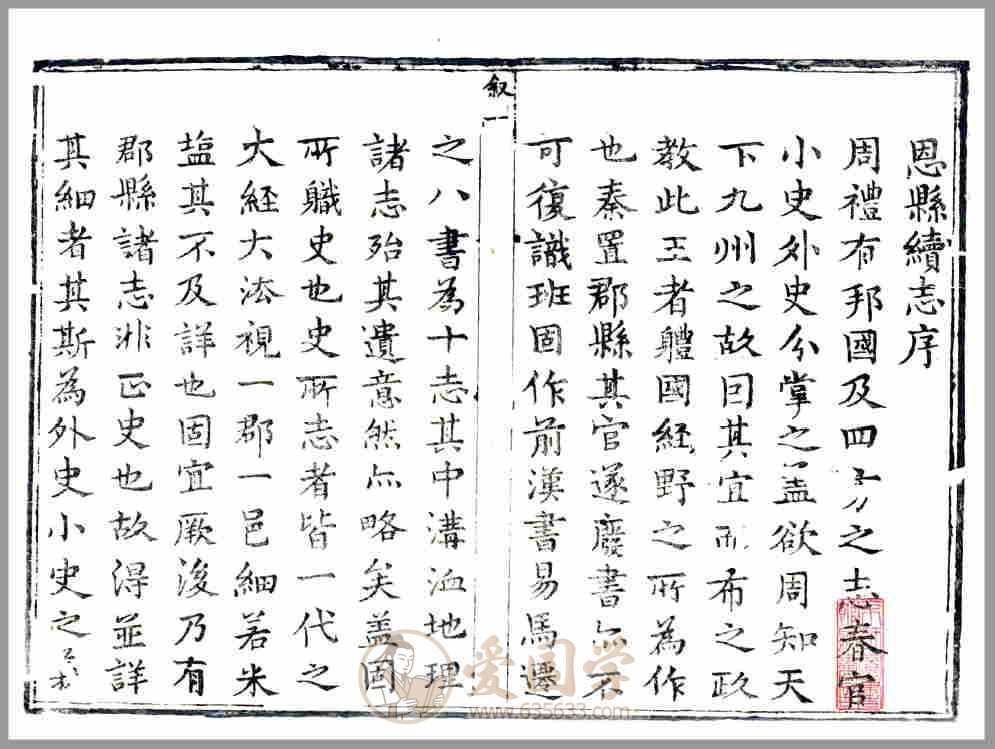 恩縣續志序
周禮有邦國及四方之志春官
小史外史分掌之盖欲周知天
下九州之故因其宜而布之政
教此王者軆國經野之所為作
也秦置郡縣其官遂廢書亦不
可復識班固作前漢書易馬遷
叙一
之八書為十志其中溝洫地理
諸志殆其遺意然亦略矣盖固
所軄史也史所志者皆一代之
大経大法視一郡一邑細若米
塩其不及詳也固宜厥後乃有
郡縣諸志非正史也故得並詳
其細者其斯為外史小史之
爱国学
www.635633.com